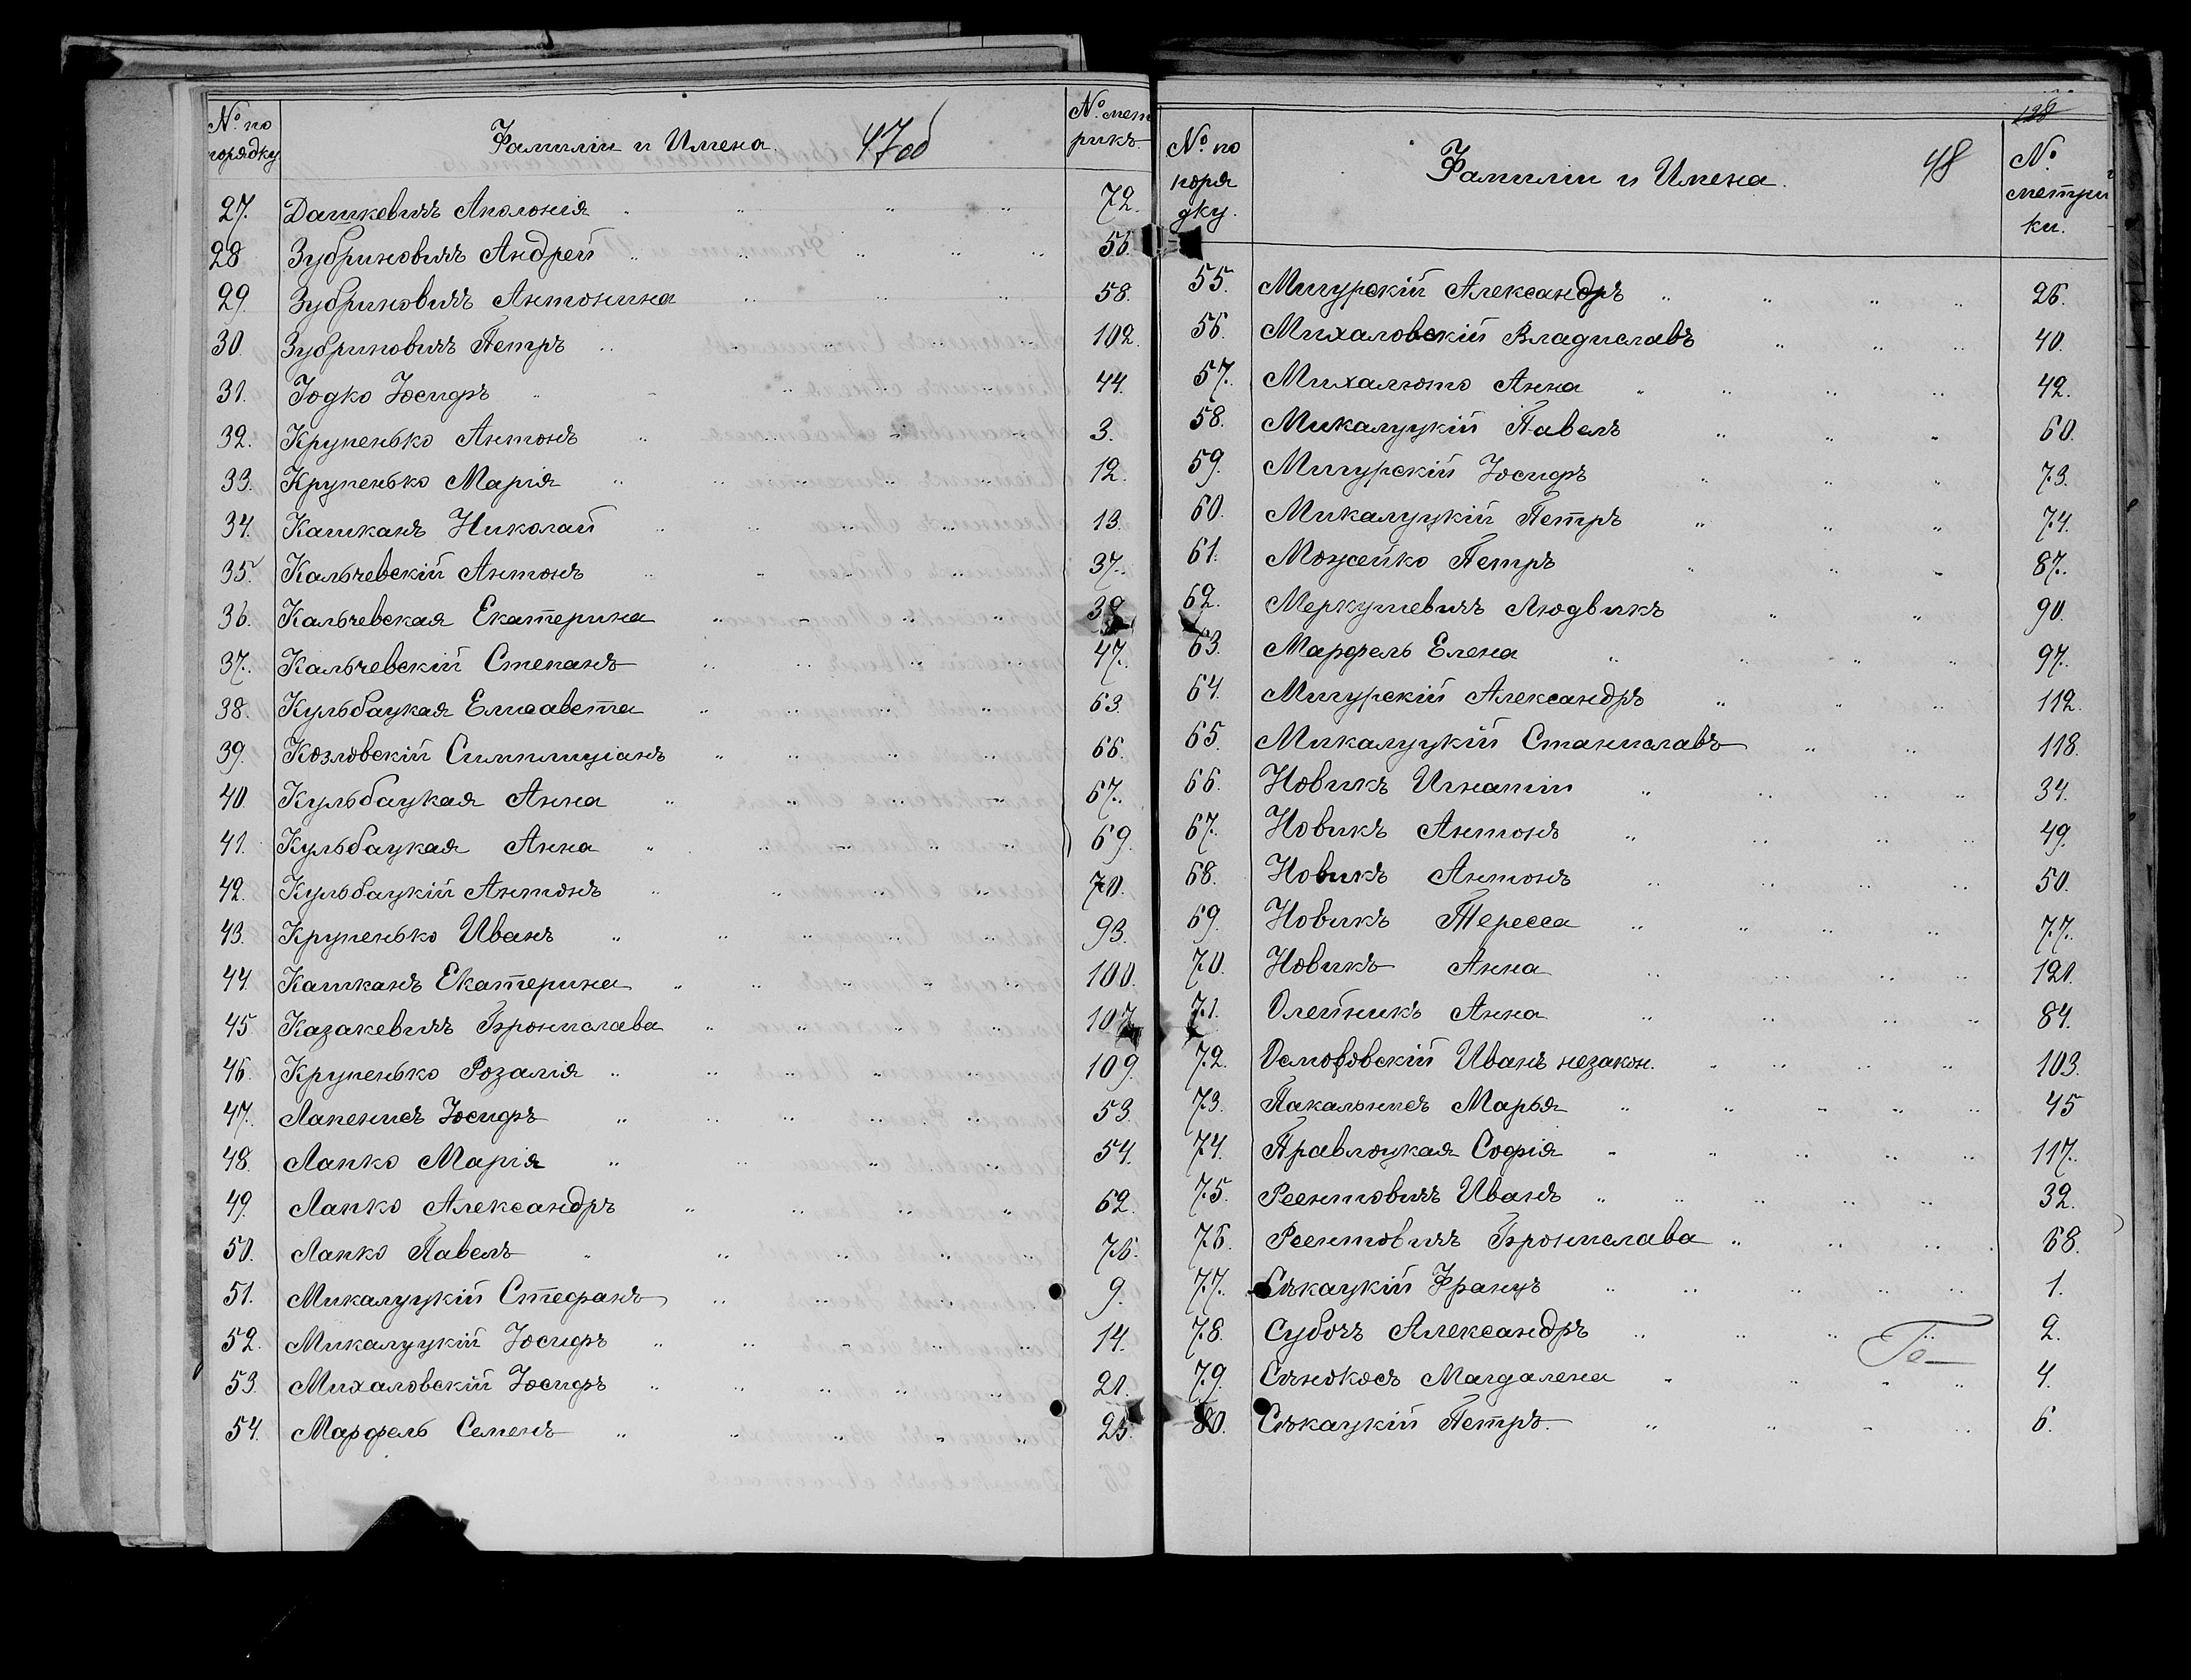 № по порядку Фамиліи и Имена. 47об № метрикъ
27. Дашкевичъ Аполонія 72.
28 Зубриновичъ Андрей 56.
29. Зубриновичъ Антонина 58.
30. Зубриновичъ Петръ 102.
31. Іодко Іосифъ 44.
32. Крупенько Антонъ 3.
33. Крупенько Марія 12.
34. Кашканъ Николай 13.
35. Кальчевскій Антонъ 37.
36. Кальчевская Екатерина 39
37. Кальчевскій Степанъ 47.
38. Кульбацкая Елисавета 63.
39. Козловскій Симплиціанъ 66.
40. Кульбацкая Анна 67.
41. Кульбацкая Анна 69.
42. Кульбацкій Антонъ 70.
43. Крупенько Иванъ 93.
44. Кашканъ Екатерина 100.
45 Казакевичъ Бронислава 107
46. Крупенько Розалія 109.
47. Лапенисъ Іосифъ 53.
48. Лапко Марія 54.
49. Лапко Александръ 62.
50. Лапко Павелъ 76.
51. Микалуцкій Стефанъ 9.
52. Микалуцкій Іосифъ 14.
53. Михаловскій Іосифъ 21.
54. Марфель Семенъ 25.
128
№ по порядку. Фамиліи и Имена. 48 № метрики.
55. Мигурскій Александръ 26.
56. Михаловскій Владиславъ 40.
57. Михалюто Анна 42.
58. Микалуцкій Павелъ 60.
59. Мигурскій Іосифъ 73.
60. Микалуцкій Петръ 74.
61. Можейко Петръ 87.
62. Меркушевичъ Людвикъ 90.
63. Марфель Елена 97.
64. Мигурскій Александръ 112.
65. Микалуцкій Станиславъ 118.
66. Новикъ Игнатій 34.
67. Новикъ Антонъ 49.
68. Новикъ Антонъ 50.
69. Новикъ Тересса 77.
70. Новикъ Анна 121.
71. Олейникъ Анна 84.
72. Осмоловскій Иванъ незакон. 103.
73. Пакальнисъ Марья 45
74. Правлоцкая Софія 117.
75. Реентовичъ Иванъ 32.
76. Реентовичъ Бронислава 68.
77. Сѣкацкій Францъ 1.
78. Субочъ Александръ 2.
79. Сѣнокосъ Магдалена 4.
80. Сѣкацкій Петръ 6.